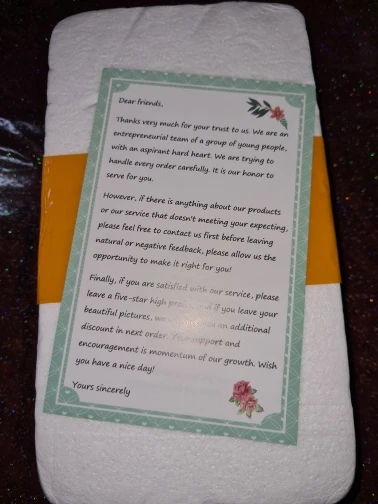 Dear friends,
Thanks very much for your trust to us. We are an
entrepreneurial team of a group of young people,
with an aspirant hard heart. We are trying to
handle every order carefully. It is our honor to
serve for you.
However, if there is anything about our products
or our service that doesn't meeting your expecting,
please feel free to contact us first before leaving
natural or negative feedback, please allow us the
opportunity to make it right for you!
Finally, if you are satisfied with our service, please
leave a five-star high and if you leave your
beautiful pictures, an additional
discount in next order. Your support and
encouragement is momentum of our growth. Wish
you have a nice day!
Yours sincerely